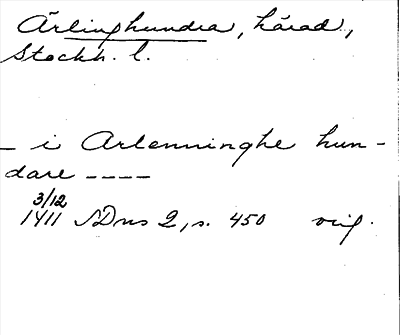 Ärlinghundra, härad,
Stockh. l.
_ i Arlenninghe hun-
dare ----
3/12
1411 SDns 2, s. 450 orig.